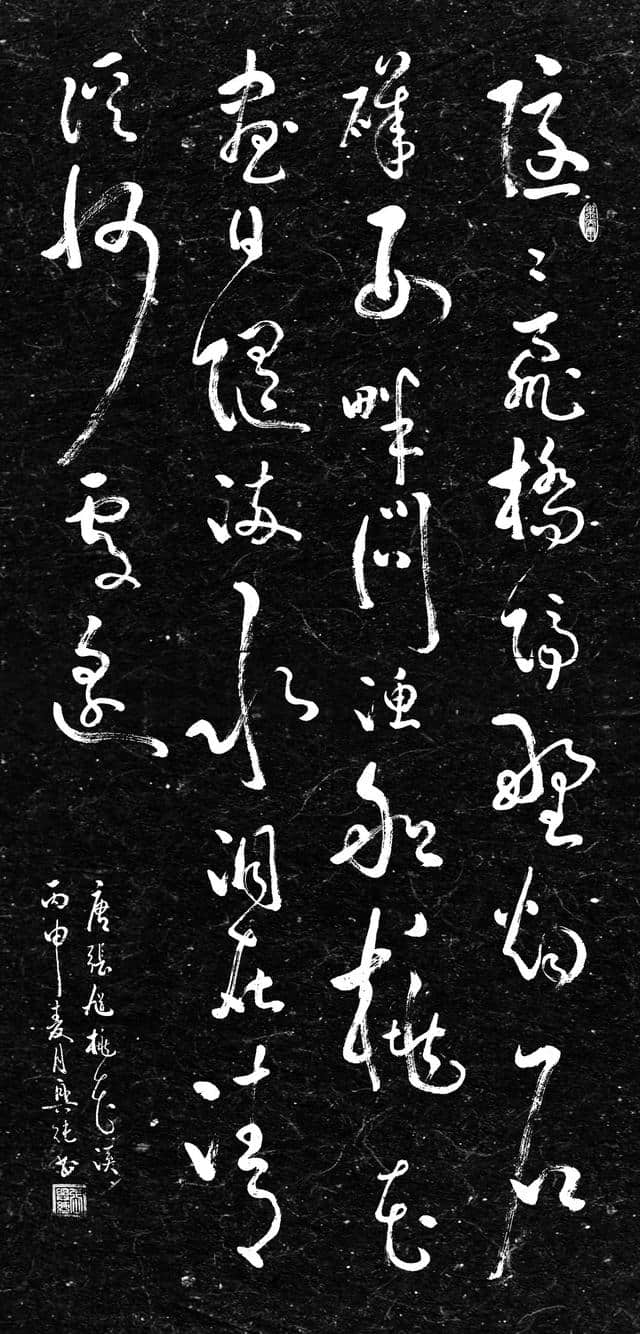 隱〻飛橋隔野烟石
磯西畔問漁船桃花
盡日隨流水洞在清
溪何處邊
唐張旭桃花溪
丙申夏月書